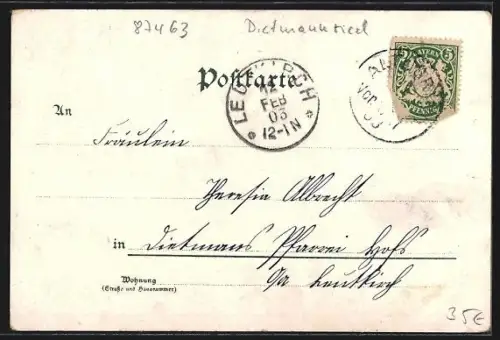 87463 Dietmannsried
Postkarte
LEUTKIRCH
12
FEB
03
12-1N
BAYERN
5 5
PFENNIG
An
Fräulein
Theresia Albrecht
in Dietmans Pfarrei Hofs
Oa Leutkirch
Wohnung
(Straße und Hausnummer)
35€